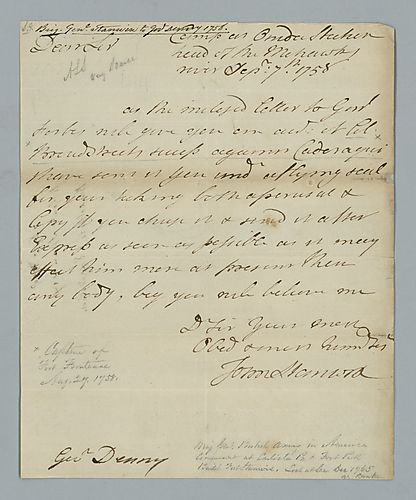 Brig. Genl. Stanwix to Gov. Denny 1758.
Dear Sir
Camp at Oneida Station
head of the Mohawks
river Sepr. 7th. 1758
ALS
as the inclosed letter to Genl.
Forbes will give you an acct. of Col.
Broadstreets success against Cadaraqui
I have sent it you undr. a flying seal
for your taking both a perusal &
Copy if you chuse it & send it after
Express as soon as possible as it may
effect him more at present then
any body, beg you will believe me
Dr Sir Your most
Obed. & most humble Sert.
John Stanwix
x Capture of
Fort Frontenac
Aug. 27. 1758.
Govr. Denny
Brig Genl. British Army in America
Command at Carlisle Pa & Fort Pitt
Built Fort Stanwix. Lost at Sea Dec 1765